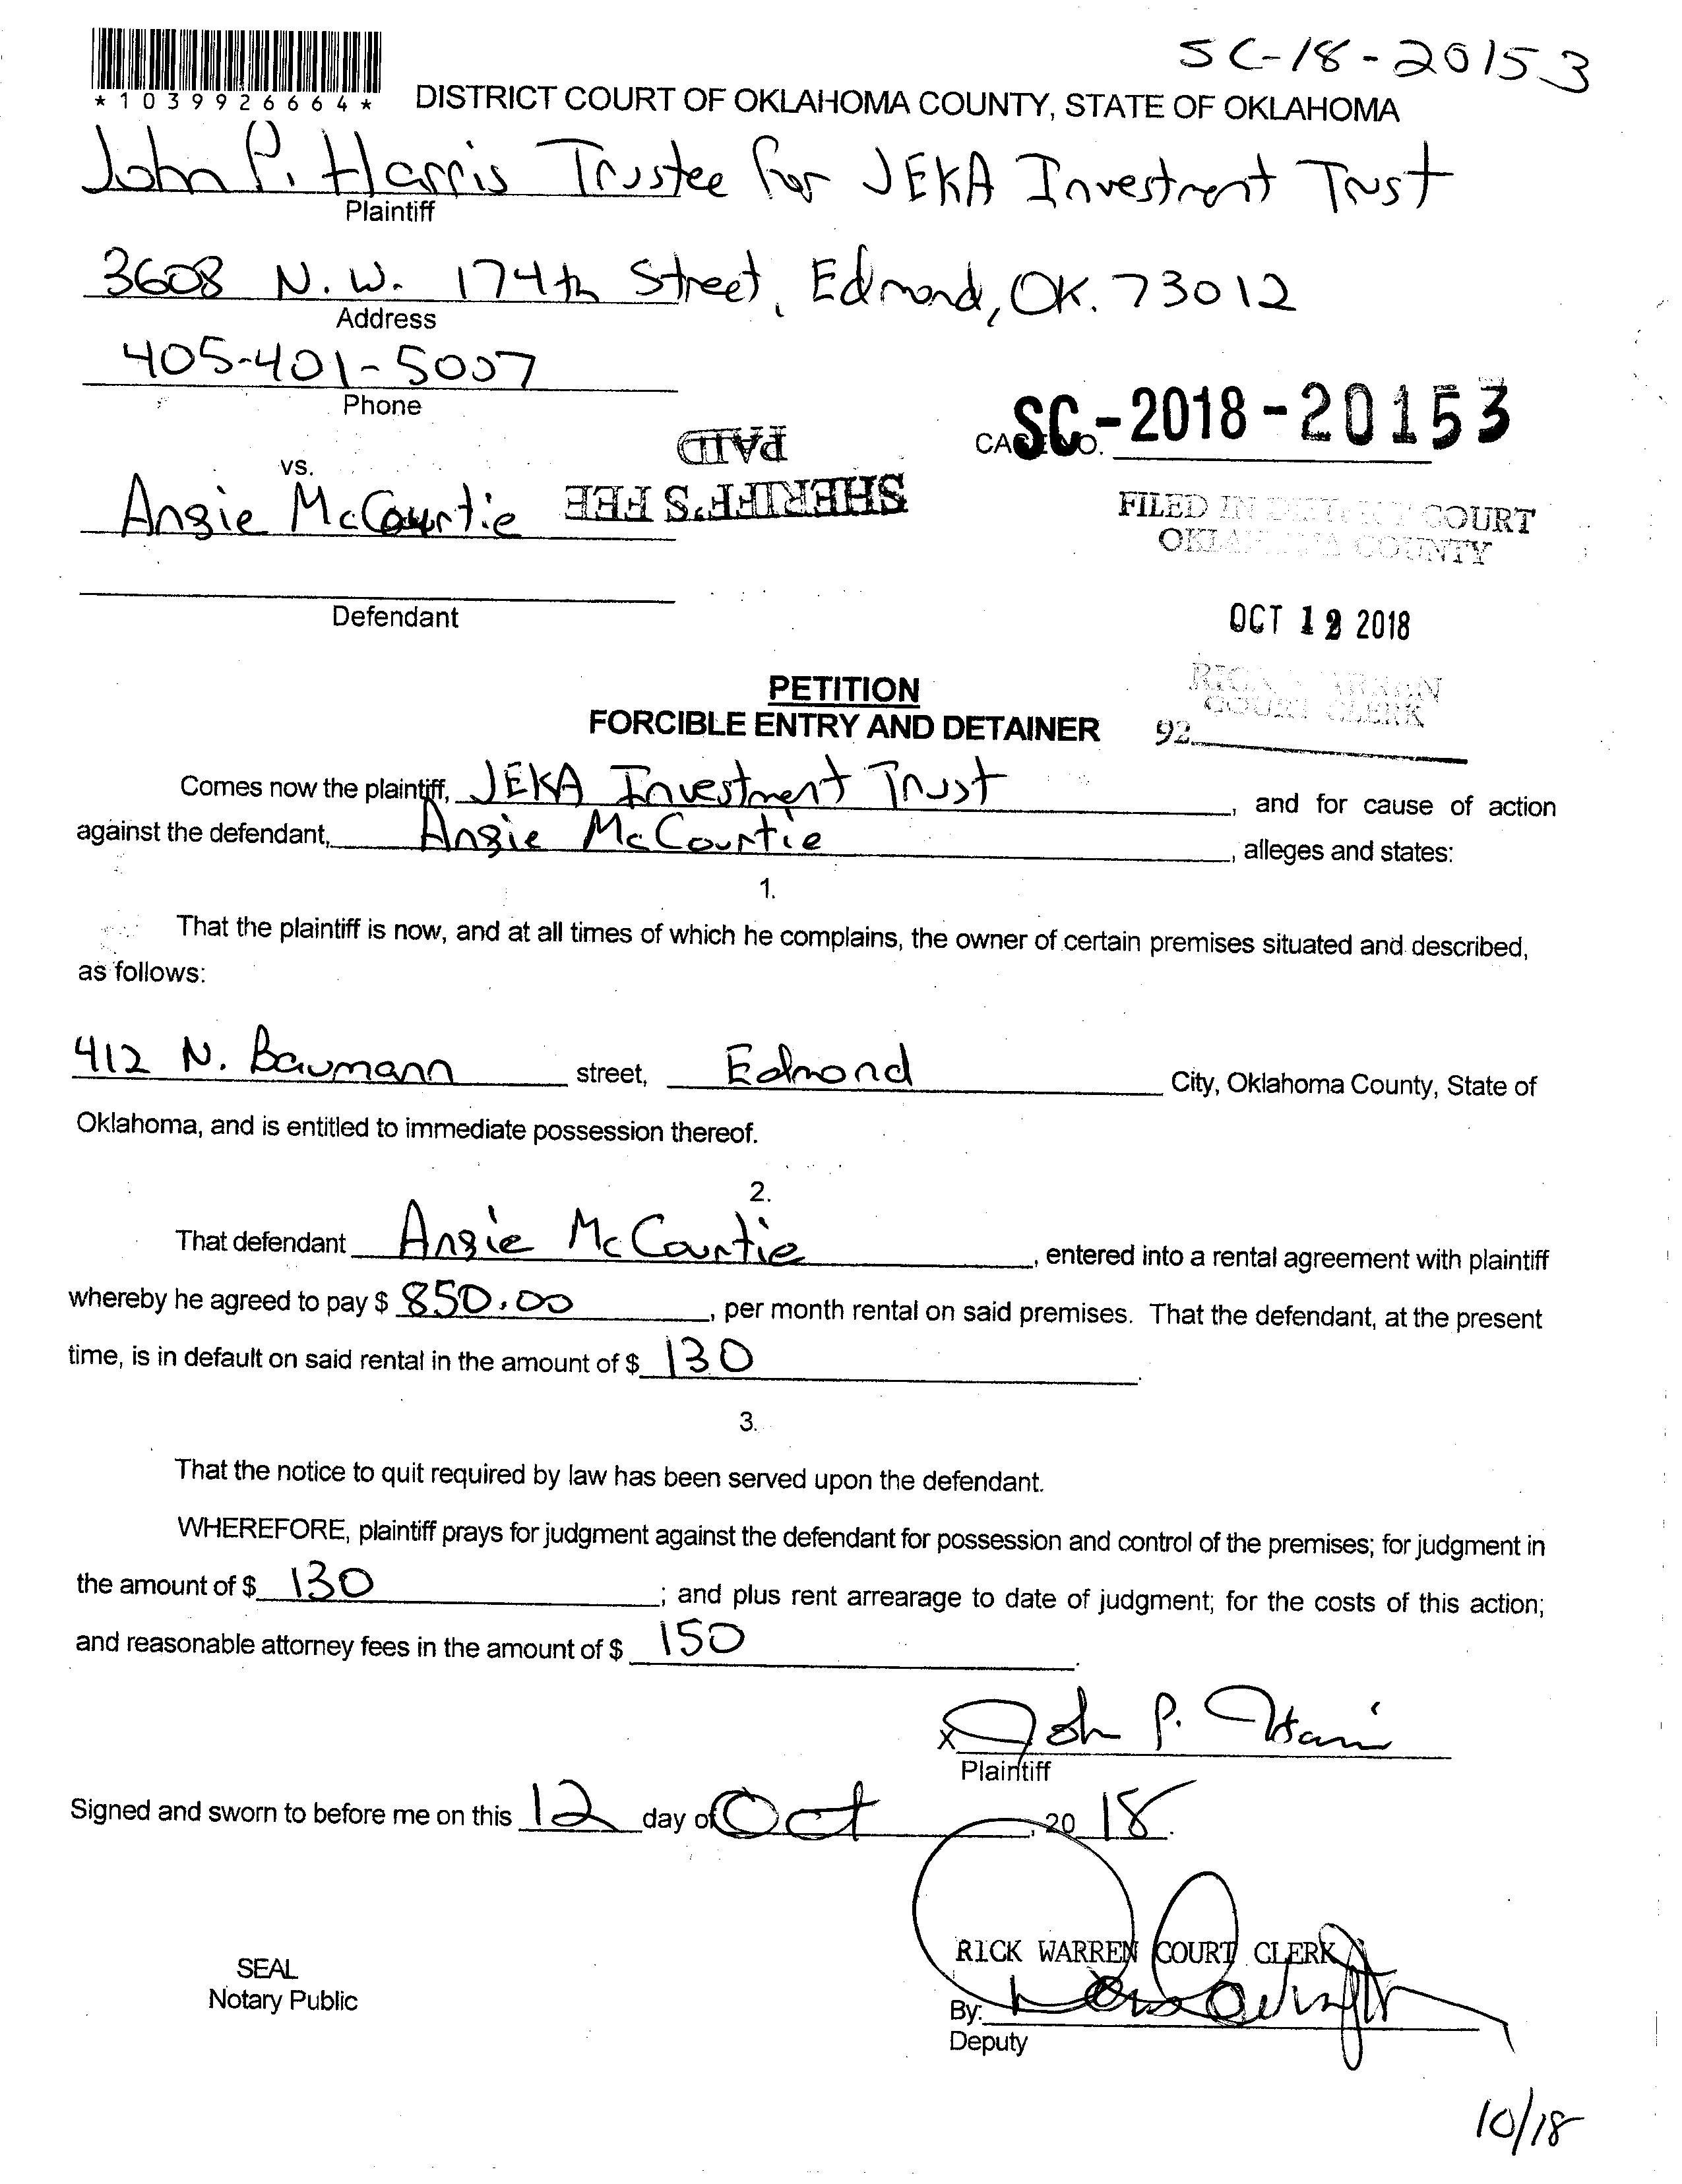 SC-18-20153
*1039926664*
DISTRICT COURT OF OKLAHOMA COUNTY, STATE OF OKLAHOMA
John P. Harris Trustee for JEKA Investment Trust
Plaintiff
3608 N.W. 174th Street, Edmond, OK. 73012
Address
405-401-5007
Phone
PAID
SHERIFF'S FEE
CASE NO. SC-2018-20153
vs.
Angie McCourtie
FILED IN DISTRICT COURT
OKLAHOMA COUNTY
Defendant
OCT 12 2018
RICK WARREN
COURT CLERK
92
PETITION
FORCIBLE ENTRY AND DETAINER
Comes now the plaintiff, JEKA Investment Trust, and for cause of action
against the defendant, Angie McCourtie, alleges and states:
1.
That the plaintiff is now, and at all times of which he complains, the owner of certain premises situated and described,
as follows:
412 N. Baumann street, Edmond City, Oklahoma County, State of
Oklahoma, and is entitled to immediate possession thereof.
2.
That defendant Angie McCourtie, entered into a rental agreement with plaintiff
whereby he agreed to pay $ 850.00, per month rental on said premises. That the defendant, at the present
time, is in default on said rental in the amount of $ 130.
3.
That the notice to quit required by law has been served upon the defendant.
WHEREFORE, plaintiff prays for judgment against the defendant for possession and control of the premises; for judgment in
the amount of $ 130; and plus rent arrearage to date of judgment; for the costs of this action;
and reasonable attorney fees in the amount of $ 150.
X John P. Harris
Plaintiff
Signed and sworn to before me on this 12 day of Oct, 20 18.
RICK WARREN COURT CLERK
SEAL
Notary Public
By:
Deputy
10/18